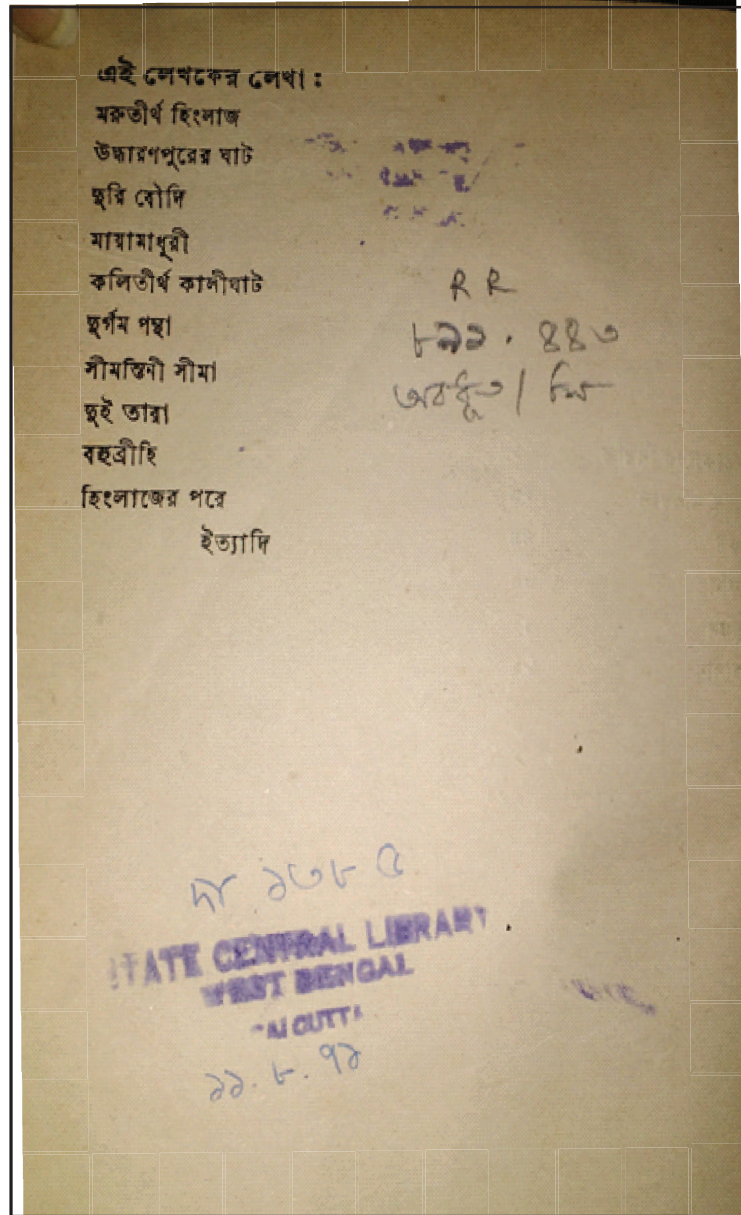 এই লেখকের লেখা :
মরুতীর্থ হিংলাজ
উদ্ধারণপুরের ঘাট
ছুরি বৌদি
মায়ামাধুরী
কলিতীর্থ কালীঘাট
দুর্গম পন্থা
সীমন্তিনী সীমা
দুই তারা
বহুব্রীহি
হিংলাজের পরে
ইত্যাদি
R R
৮৯১.৪৪৩
অবধূত /
১৩৮৫
STATE CENTRAL LIBRARY
WEST BENGAL
CALCUTTA
১১.৮.৭১